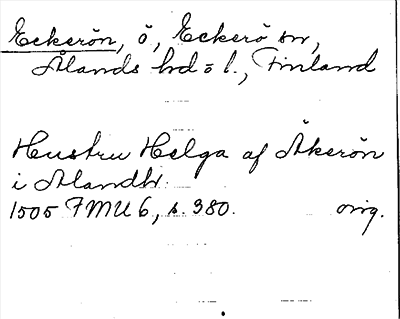 Eckerön, ö, Eckerö sn,
Ålands hd o l., Finland
Hustru Helga af Åkerön
i Alandh.
1505 FMU 6, s. 380. orig.